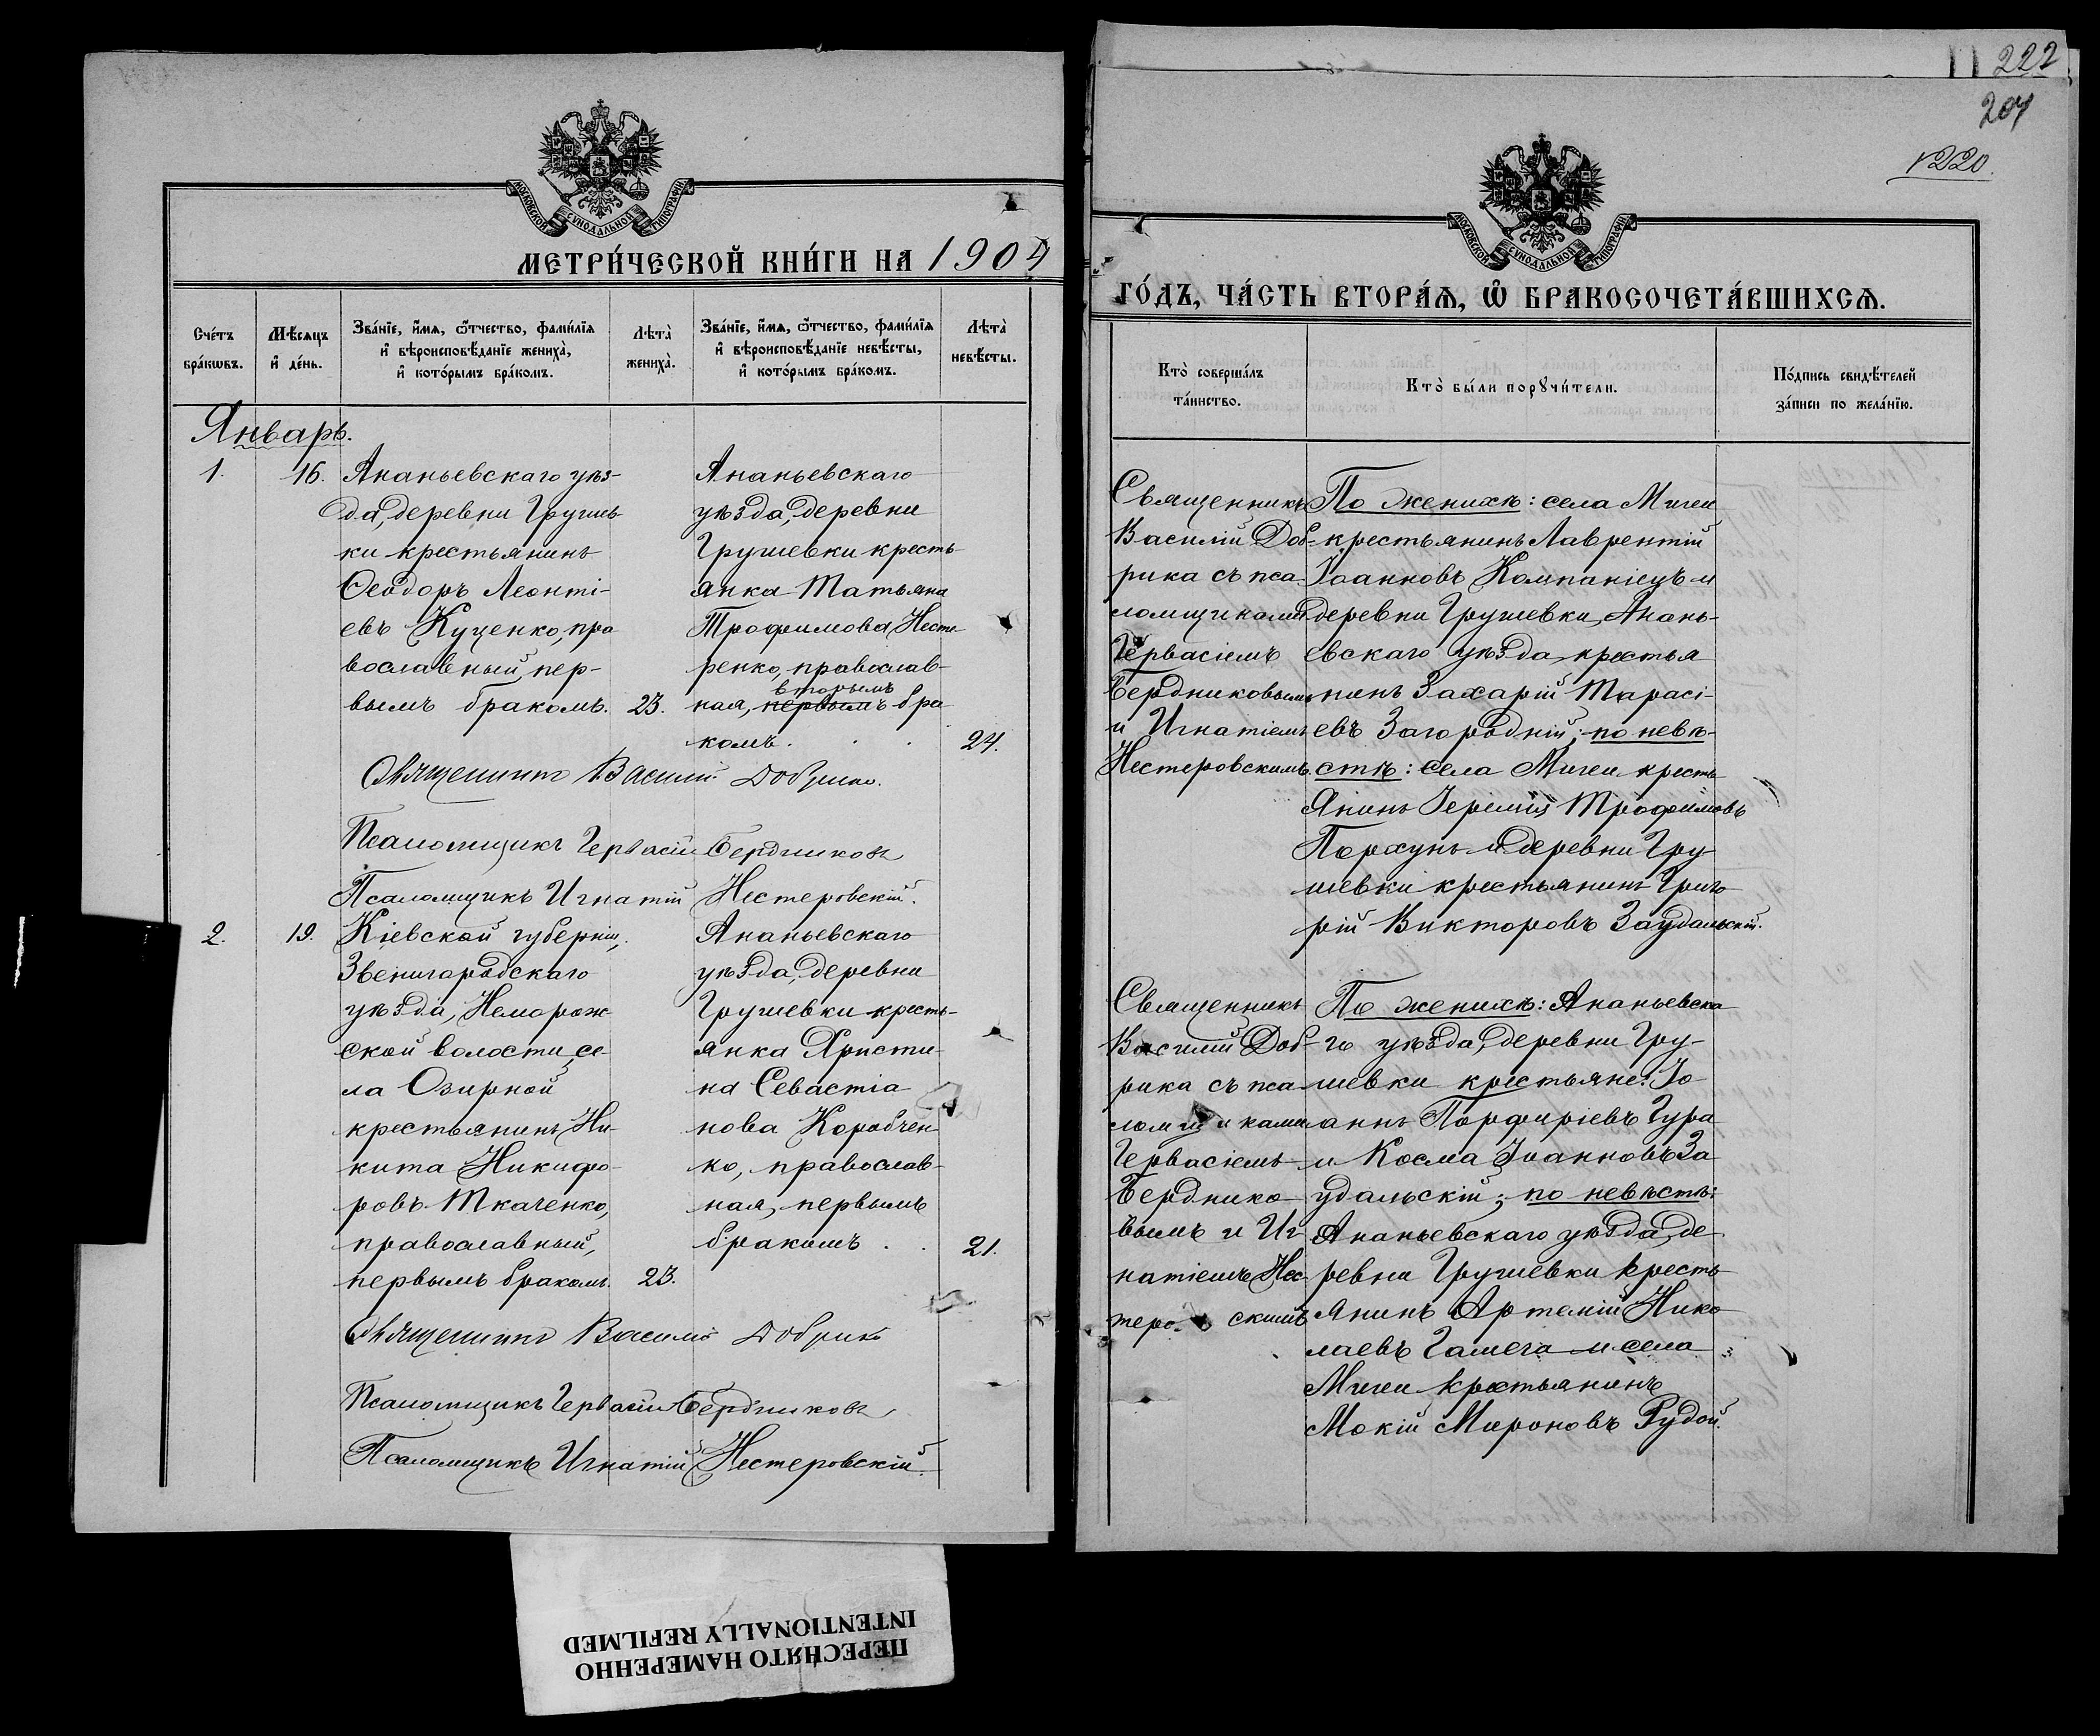 МОСКОВСКОЙ СѴНОДАЛЬНОЙ ТИПОГРАФІИ
МЕТРИ́ЧЕСКОЙ КНИ́ГИ НА 1904
Сче́тъ бра́кѡвъ.
Мѣ́сяцъ и҆ де́нь.
Зва́нїе, и҆́мѧ, ѻ҆́тчество, фами́лїѧ
и҆ вѣроисповѣ́данїе жениха̀,
и҆ кото́рымъ бра́комъ.
Лѣта̀ жениха̀.
Зва́нїе, и҆́мѧ, ѻ҆́тчество, фами́лїѧ
и҆ вѣроисповѣ́данїе невѣ́сты,
и҆ кото́рымъ бра́комъ.
Лѣта̀ невѣ́сты.
Январь.
1.
16.
Ананьевскаго уѣз-
да, деревни Грушев
ки крестьянинъ
Ѳеодоръ Леонті-
евъ Куценко, пра
вославный, пер-
вымъ бракомъ.
23.
Ананьевскаго
уѣзда, деревни
Грушевки кресть-
янка Татьяна
Трофимова Несте-
ренко, православ-
вторымъ
ная, первымъ бра
комъ.
24.
Священникъ Василій Добрика.
Псаломщикъ Гервасій Бердниковъ
Псаломщикъ Игнатій Нестеровскій.
2.
19.
Кіевской губерніи,
Звенигородскаго
уѣзда, Неморож
ской волости, се-
ла Озирной
крестьянинъ Ни-
кита Никифо-
ровъ Ткаченко,
православный,
первымъ бракомъ.
23.
Ананьевскаго
уѣзда, деревни
Грушевки кресть-
янка Христи-
на Севастіа
нова Коробчен-
ко, православ-
ная, первымъ
бракомъ . .
21.
Священникъ Василій Добрика
Псаломщикъ Гервасій Бердниковъ
Псаломщикъ Игнатій Нестеровскій.
222
207
220.
МОСКОВСКОЙ СѴНОДАЛЬНОЙ ТИПОГРАФІИ
ГО́ДЪ, ЧА́СТЬ ВТОРА́Ѧ, Ѽ БРАКОСОЧЕТА́ВШИХСѦ.
Кто̀ соверша́лъ
та́инство.
Кто̀ бы́ли порꙋчи́тели.
По́дпись свидѣ́телей
за́писи по жела́нїю.
Священникъ
Василій Доб-
рика съ пса-
ломщиками
Гервасіемъ
Бердниковымъ
и Игнатіемъ
Нестеровскимъ.
По женихѣ: села Мигеи
крестьянинъ Лаврентій
Іоанновъ Компаніецъ и
деревни Грушевки, Анань-
евскаго уѣзда, крестья
нинъ Захарій Тарасі-
евъ Загородній; по невѣ-
стѣ: села Мигеи кресть
янинъ Іеремія Трофимовъ
Порхунъ и деревни Гру-
шевки крестьянинъ Григо
рій Викторовъ Заудальскій.
Священникъ
Василій Доб-
рика съ пса-
ломщиками
Гервасіемъ
Бердннко-
вымъ и Иг-
натіемъ Нес-
теро скимъ
По женихѣ: Ананьевска
го уѣзда, деревни Гру-
шевки крестьяне: Іо
аннъ Порфиріевъ Гура
и Косма Іоанновъ За
удальскій; по невѣстѣ:
Ананьевскаго уѣзда, де-
ревни Грушевки кресть
янинъ Артемій Нико
лаевъ Гамега и села
Мигеи крестьянинъ
Мокій Мироновъ Рудой.
ПЕРЕСНЯТО НАМЕРЕННО
INTENTIONALLY REFILMED